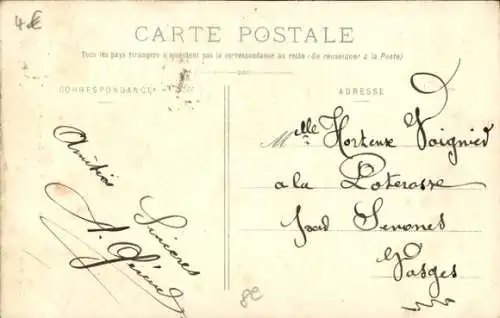 4€
CARTE POSTALE
Tous les pays étrangers n'acceptent pas la correspondance au recto (Se renseigner à la Poste)
CORRESPONDANCE
ADRESSE
Amitiés
Sincères
A.
Melle Hortense Voignier
a la Poterosse
Senones
Vosges
8€